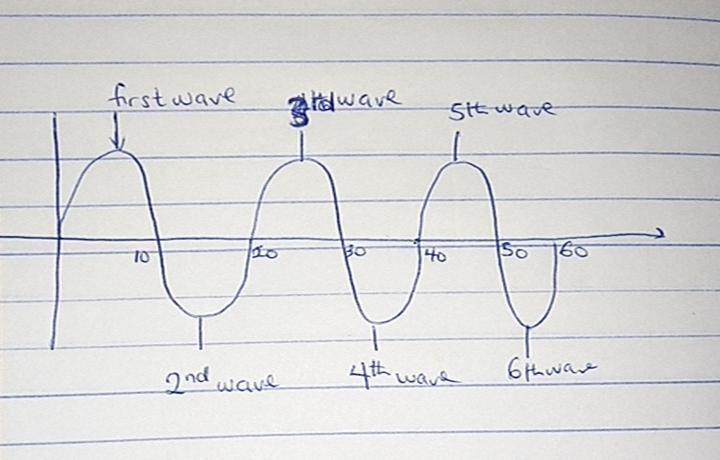 first wave
3rd wave
5th wave
10 20 30 40 50 60
2nd wave
4th wave
6th wave